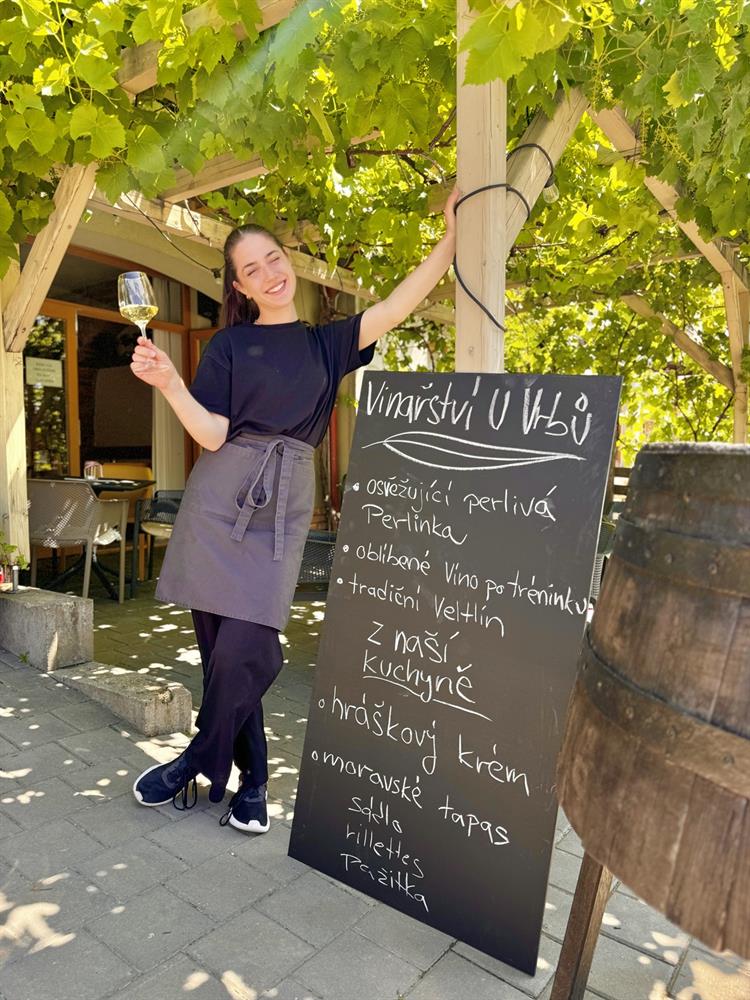 Vinařství U Vrbů
• osvěžující perlivá
Perlinka
• oblíbené Víno po tréninku
• tradiční Veltlín
Z naší
kuchyně
• hráškový krém
• moravské tapas
sádlo
rillettes
Pažitka